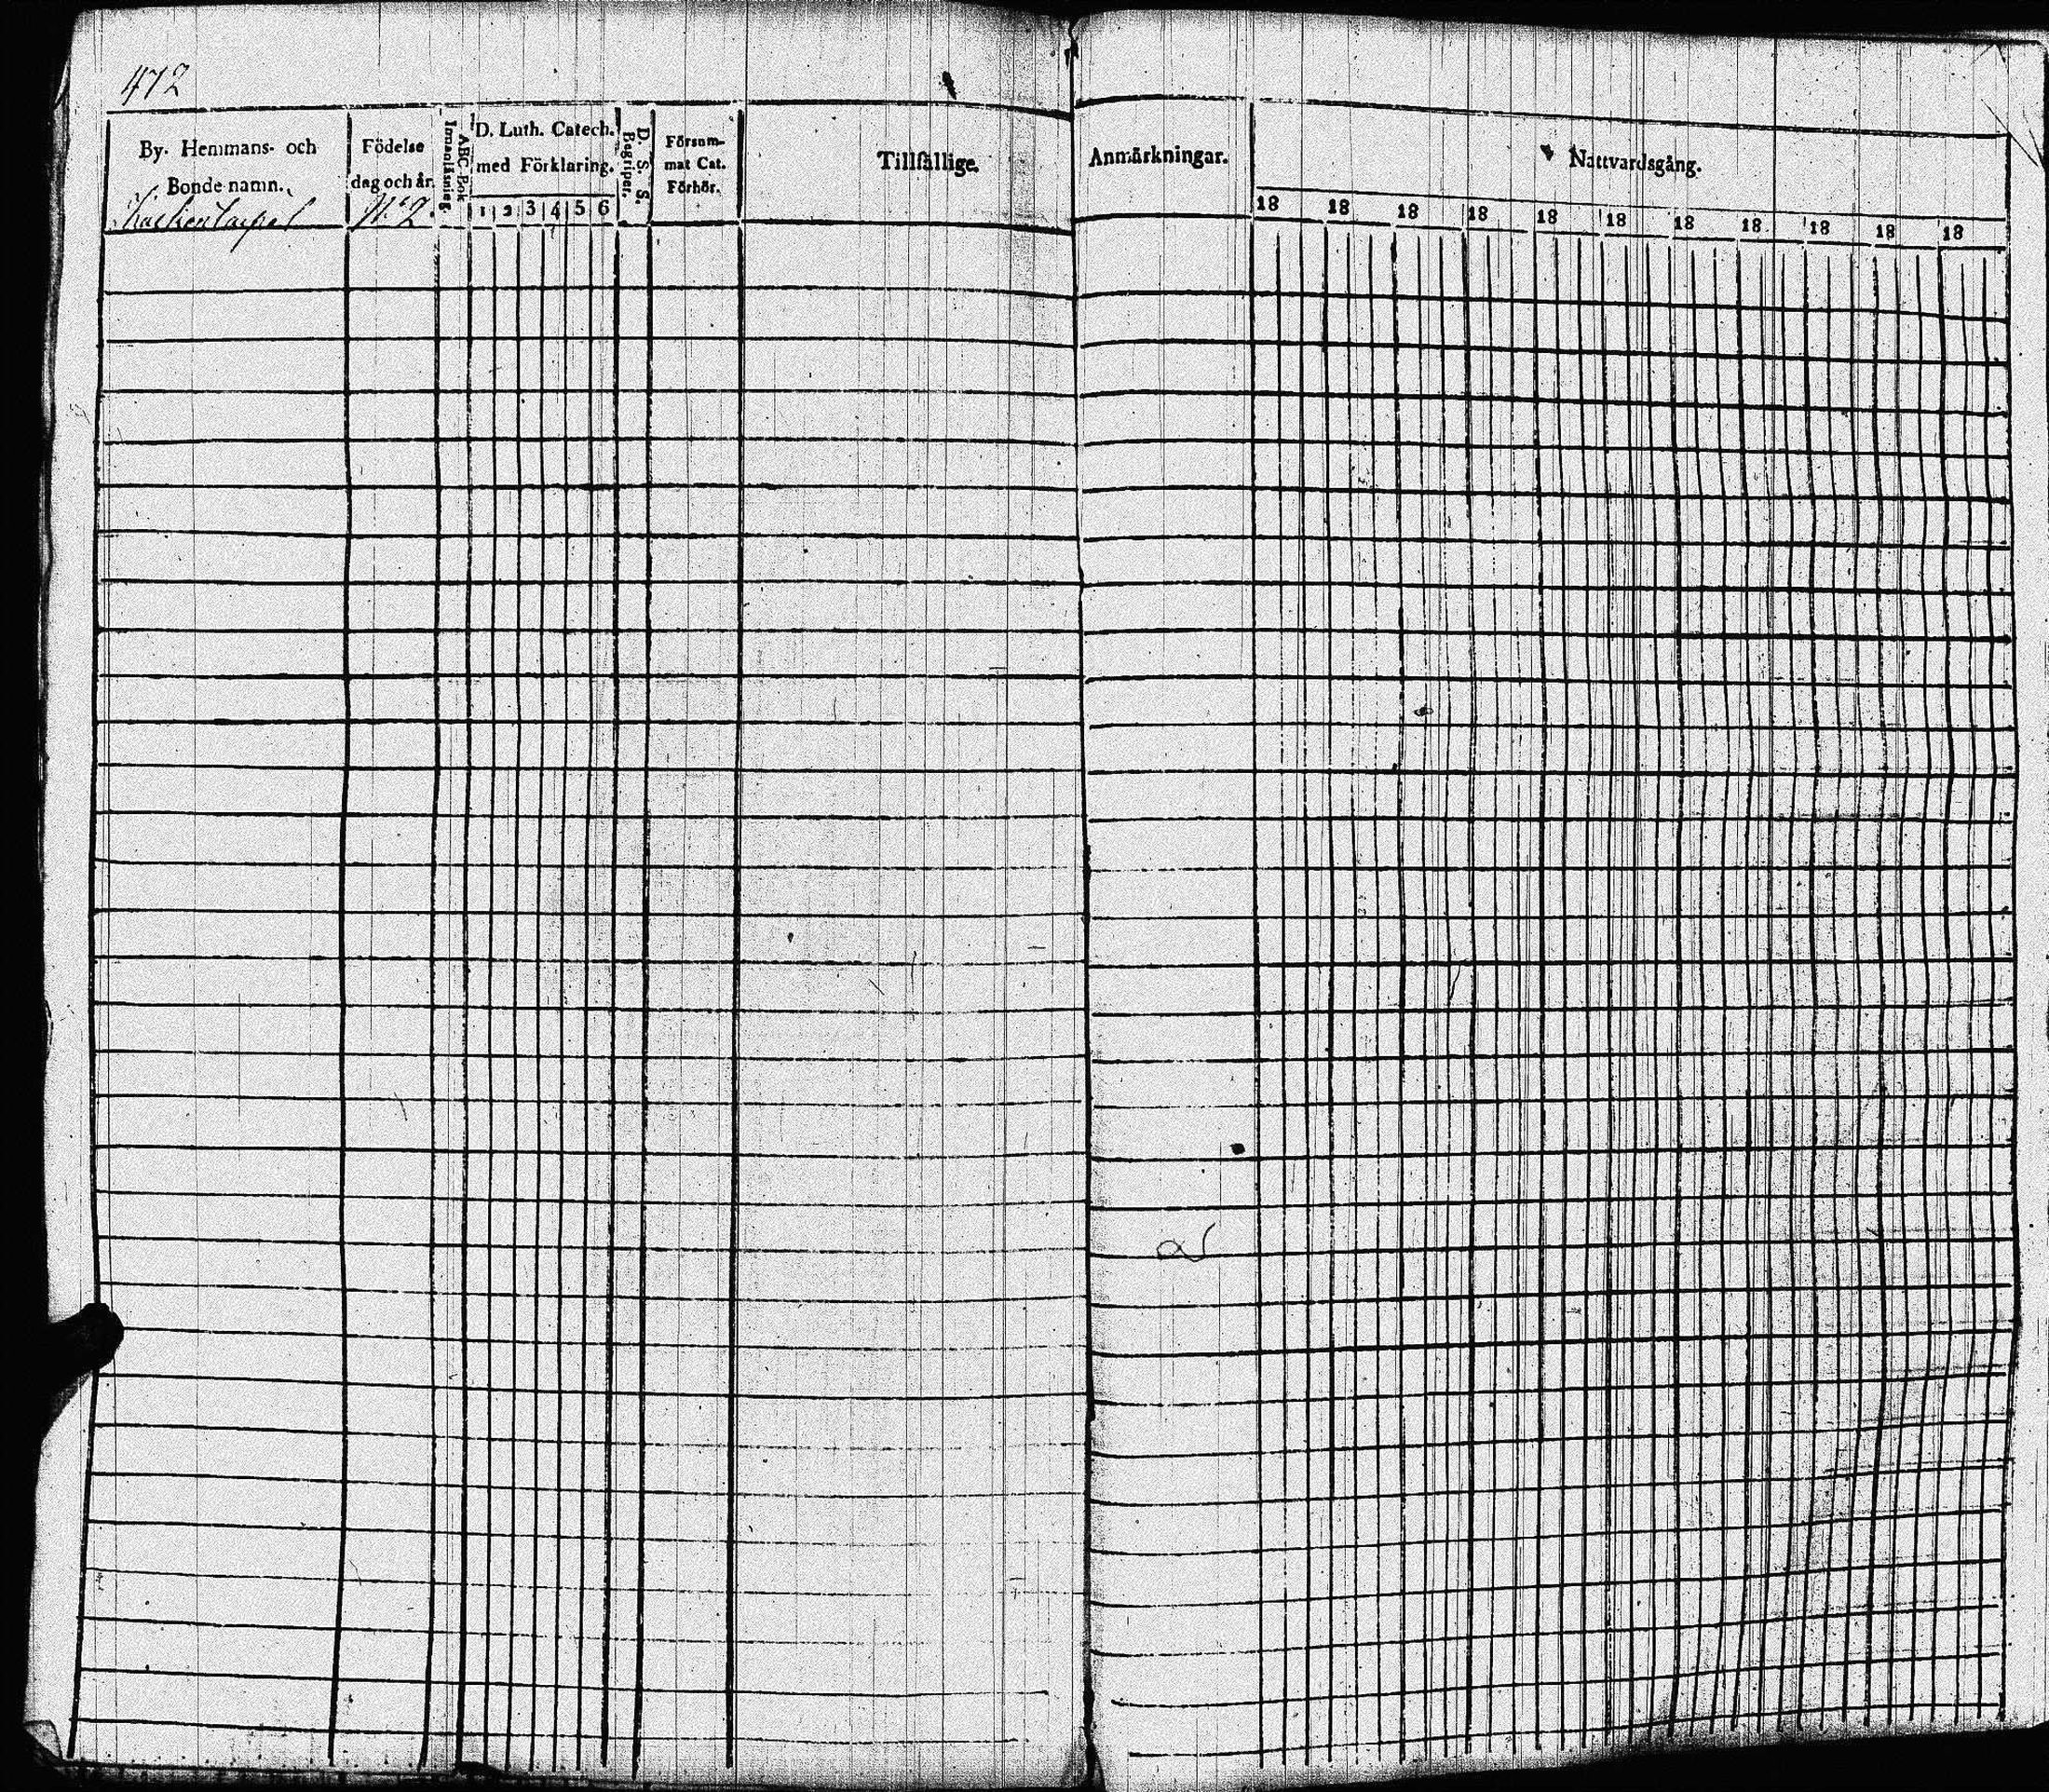 472
By- Hemmans- och
Bonde-namn.
Födelse
dag och år.
ABC-Bok
Innanläsning.
D. Luth. Catech.
med Förklaring.
1 2 3 4 5 6
D. S. S.
Begriper.
Försum-
mat Cat.
Förhör.
Tillfällige
Anmärkningar.
Nattvardsgång.
18 18 18 18 18 18 18 18 18 18 18
N:o 2.